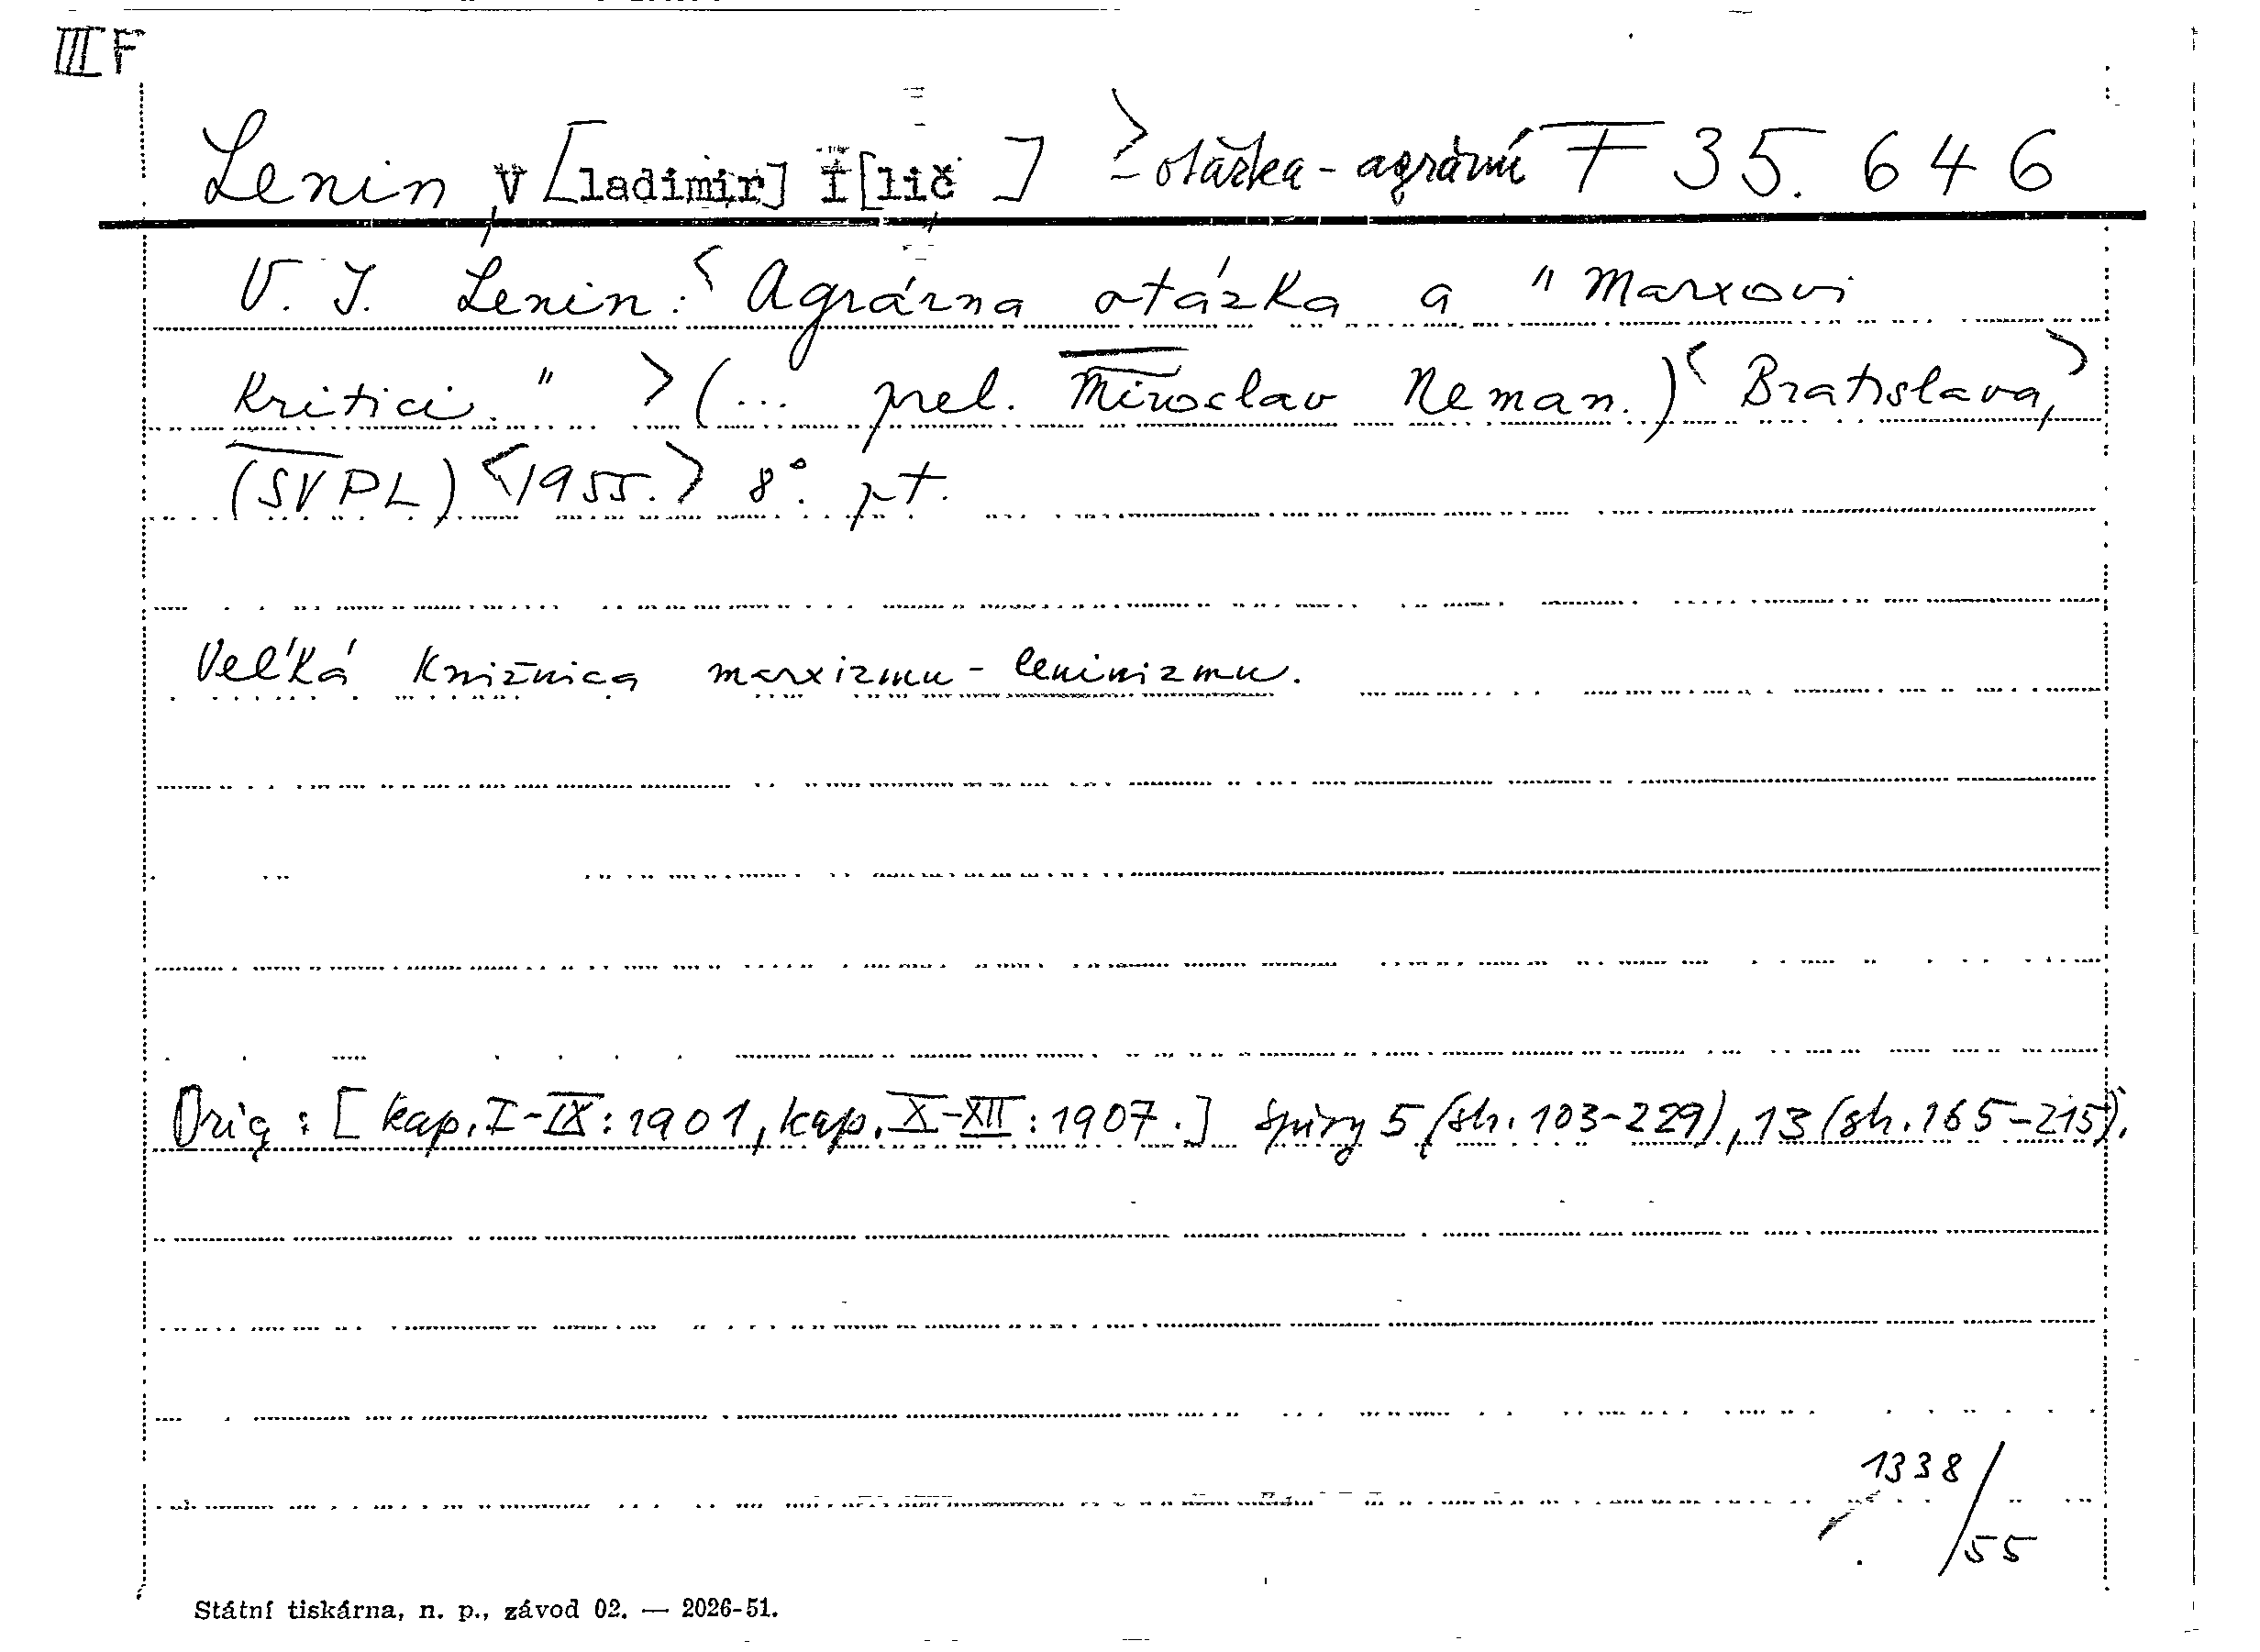 III F
Lenin V[ladimir] I[lič] > - otázka - agrární F 35.646
V. I. Lenin: <Agrárna otázka a "Marxovi
Kritici." > (... prel. Miroslav Neman.) <Bratislava,>
(SVPL) <1955.> 8°. pt.
Veľká Knižnica marxizmu-leninizmu.
Orig: [kap. I-IX: 1901, kap. X-XII: 1907.] Spisy 5 (str. 103-229), 13 (str. 165-215).
1338/55
Státní tiskárna, n. p., závod 02. — 2026-51.